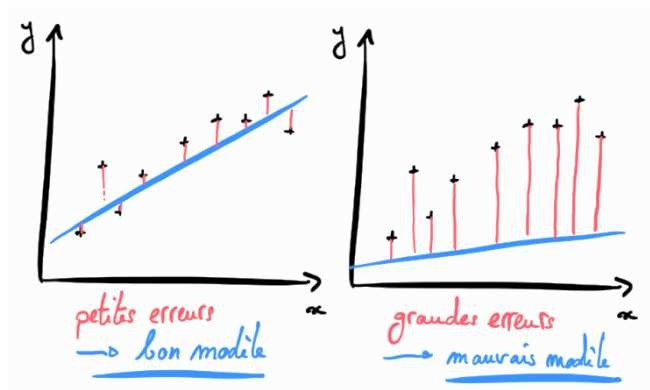 y
x
petites erreurs
→ bon modèle
y
x
grandes erreurs
→ mauvais modèle